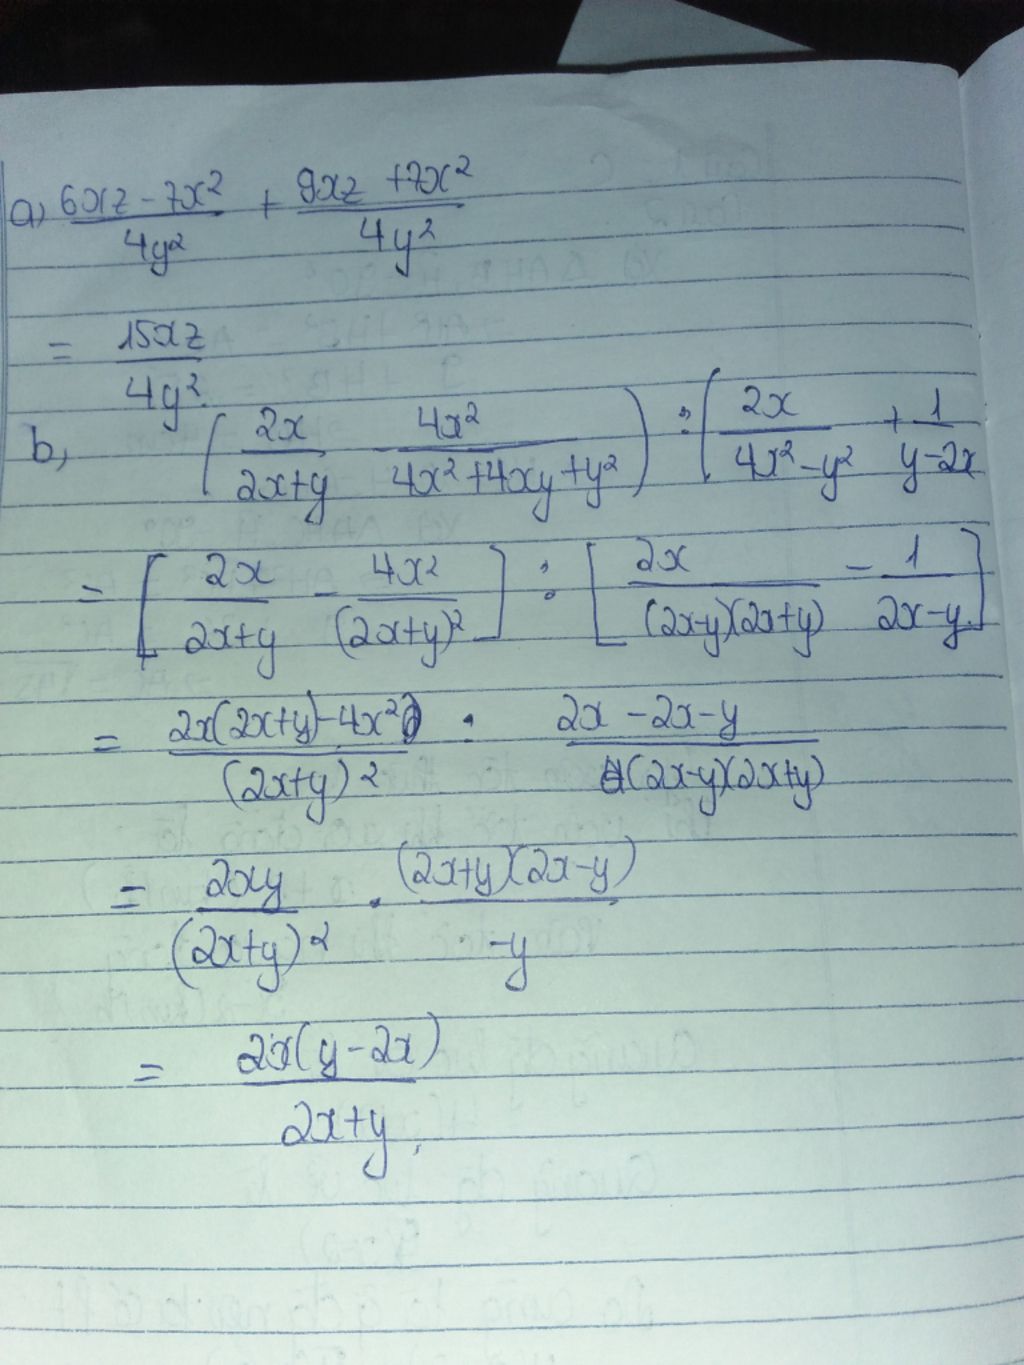 a) (6xz - 7x²)/(4y²) + (9xz + 7x²)/(4y²)
= (15xz)/(4y²)
b, (2x/(2x+y) - 4x²/(4x²+4xy+y²)) : (2x/(4x²-y²) + 1/(y-2x)
= [2x/(2x+y) - 4x²/(2x+y)²] : [2x/((2x-y)(2x+y)) - 1/(2x-y)]
= (2x(2x+y)-4x²)/(2x+y)² : (2x-2x-y)/((2x-y)(2x+y))
= 2xy/(2x+y)² . ((2x+y)(2x-y))/(-y)
= (2x(y-2x))/(2x+y)